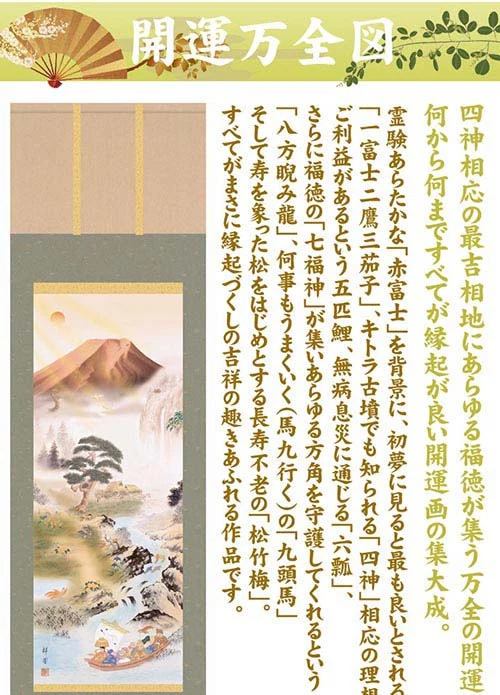 開運万全図
四神相応の最吉相地にあらゆる福徳が集う万全の開運
何から何まですべてが縁起が良い開運画の集大成。
霊験あらたかな「赤富士」を背景に、初夢に見ると最も良いとされる
「一富士二鷹三茄子」、キトラ古墳でも知られる「四神」相応の理想
ご利益があるという五匹鯉、無病息災に通じる「六瓢」、
さらに福徳の「七福神」が集いあらゆる方角を守護してくれるという
「八方睨み龍」、何事もうまくいく(馬九行く)の「九頭馬」
そして寿を象った松をはじめとする長寿不老の「松竹梅」。
すべてがまさに縁起づくしの吉祥の趣きあふれる作品です。